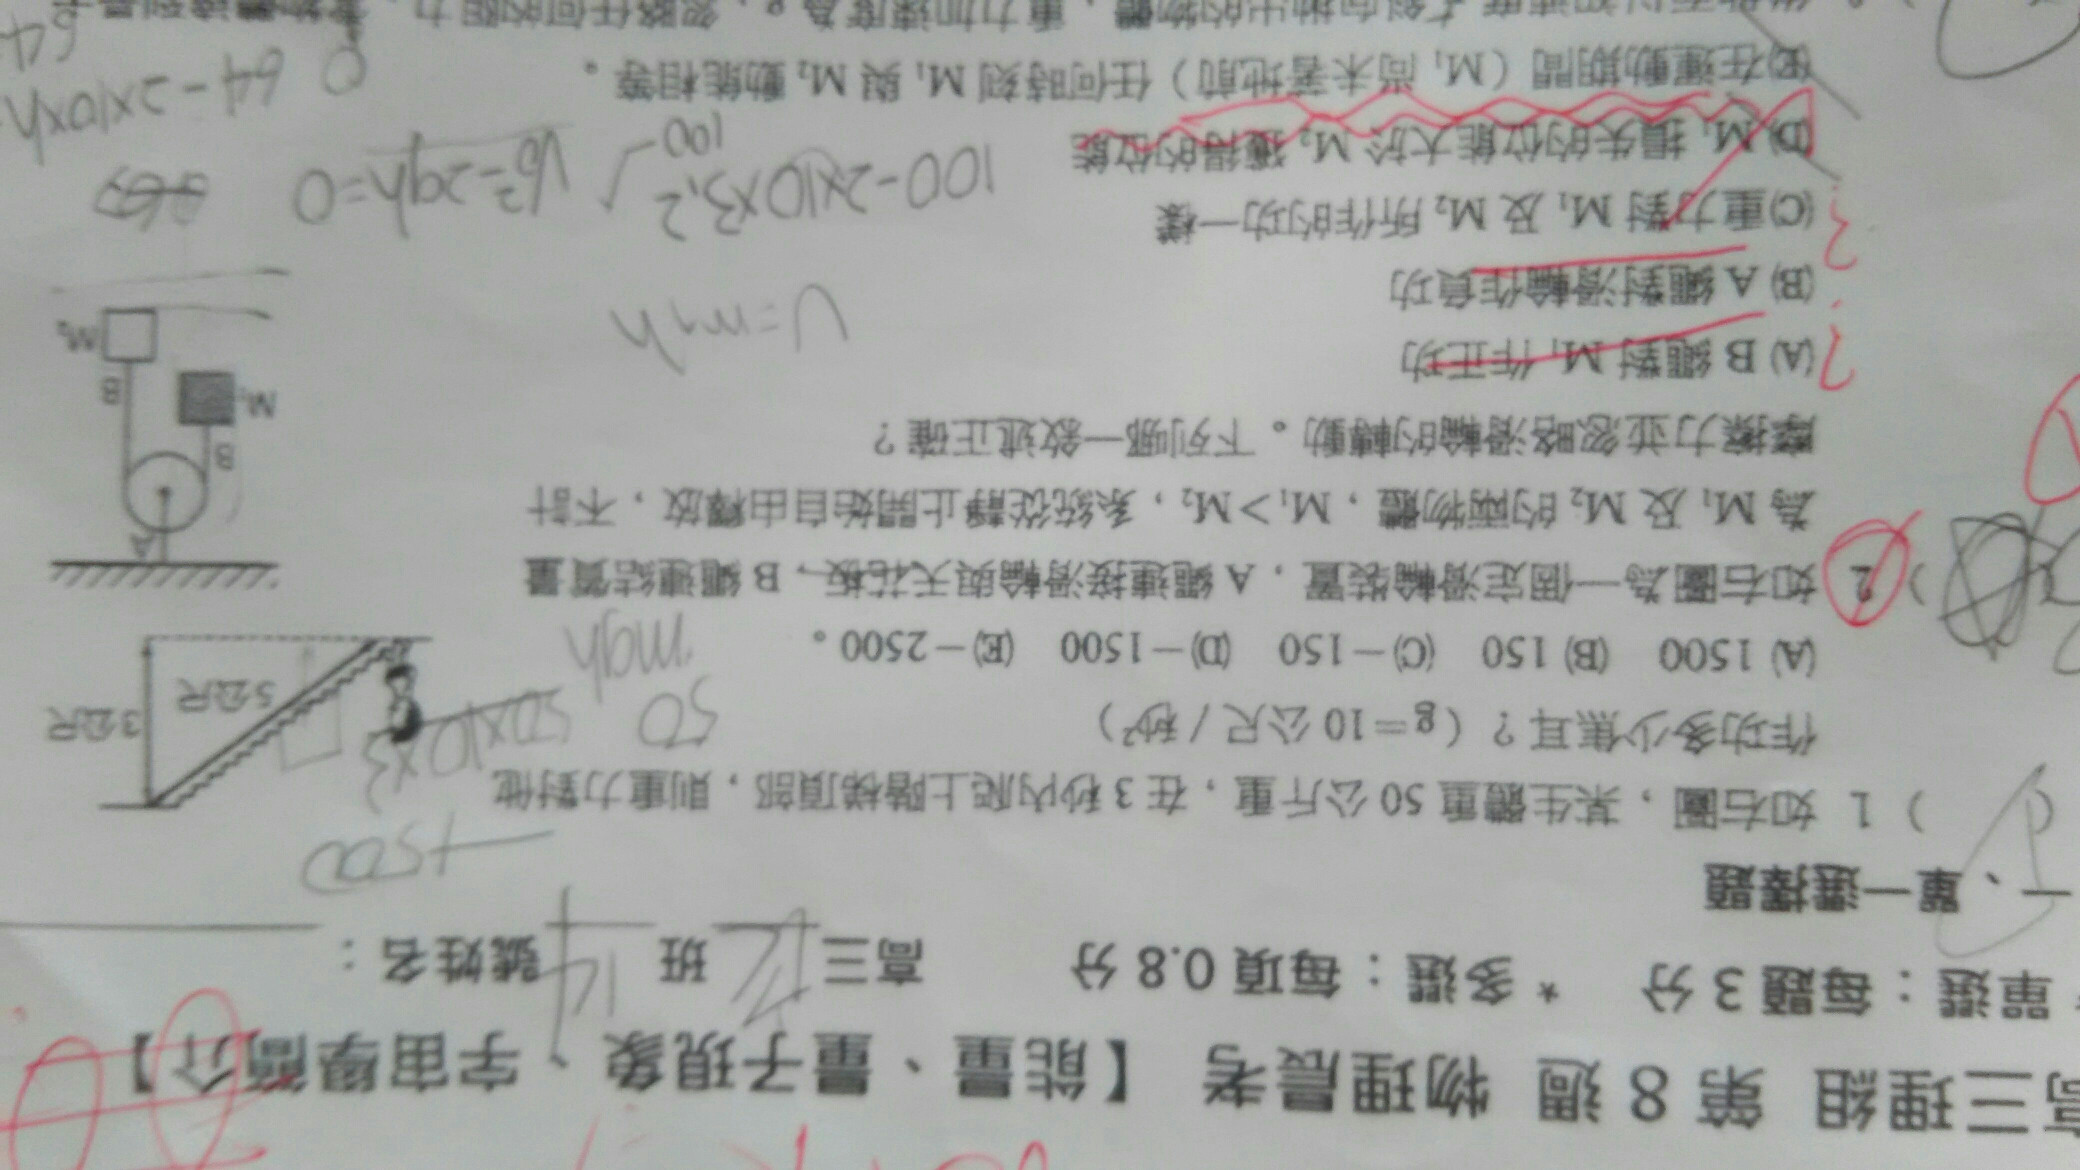 高三理組 第 8 週 物理晨考 【能量、量子現象、宇宙學簡介】
單選：每題 3 分 * 多選：每項 0.8 分 高三 班 14 號姓名：
一、單一選擇題
( ) 1 如右圖，某生體重 50 公斤重，在 3 秒內爬上階梯頂部，則重力對他
作功多少焦耳？（g＝10 公尺／秒²）
(A) 1500 (B) 150 (C)－150 (D)－1500 (E)－2500。
3公尺
5公尺
50×10×3
50
mgh
) 2 如右圖為一個定滑輪裝置，A 繩連接滑輪與天花板、B 繩連結質量
為 M₁ 及 M₂ 的兩物體，M₁＞M₂，系統從靜止開始自由釋放，不計
摩擦力並忽略滑輪的轉動。下列哪一敘述正確？
(A) B 繩對 M₁ 作正功
(B) A 繩對滑輪作負功
(C)重力對 M₁ 及 M₂ 所作的功一樣
(D) M₁ 損失的位能大於 M₂ 獲得的位能
(E)在運動期間（M₁ 尚未著地前）任何時刻 M₁ 與 M₂ 動能相等。
A
B
B
M₁
M₂
100-2×10×3.2
100
V₀²-2gh=0
64-2×10×h
0
64